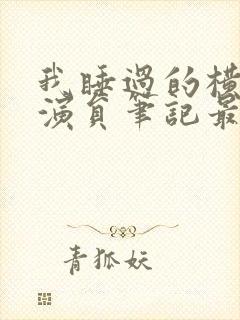 我睡過的橫
演員筆記最
青狐妖